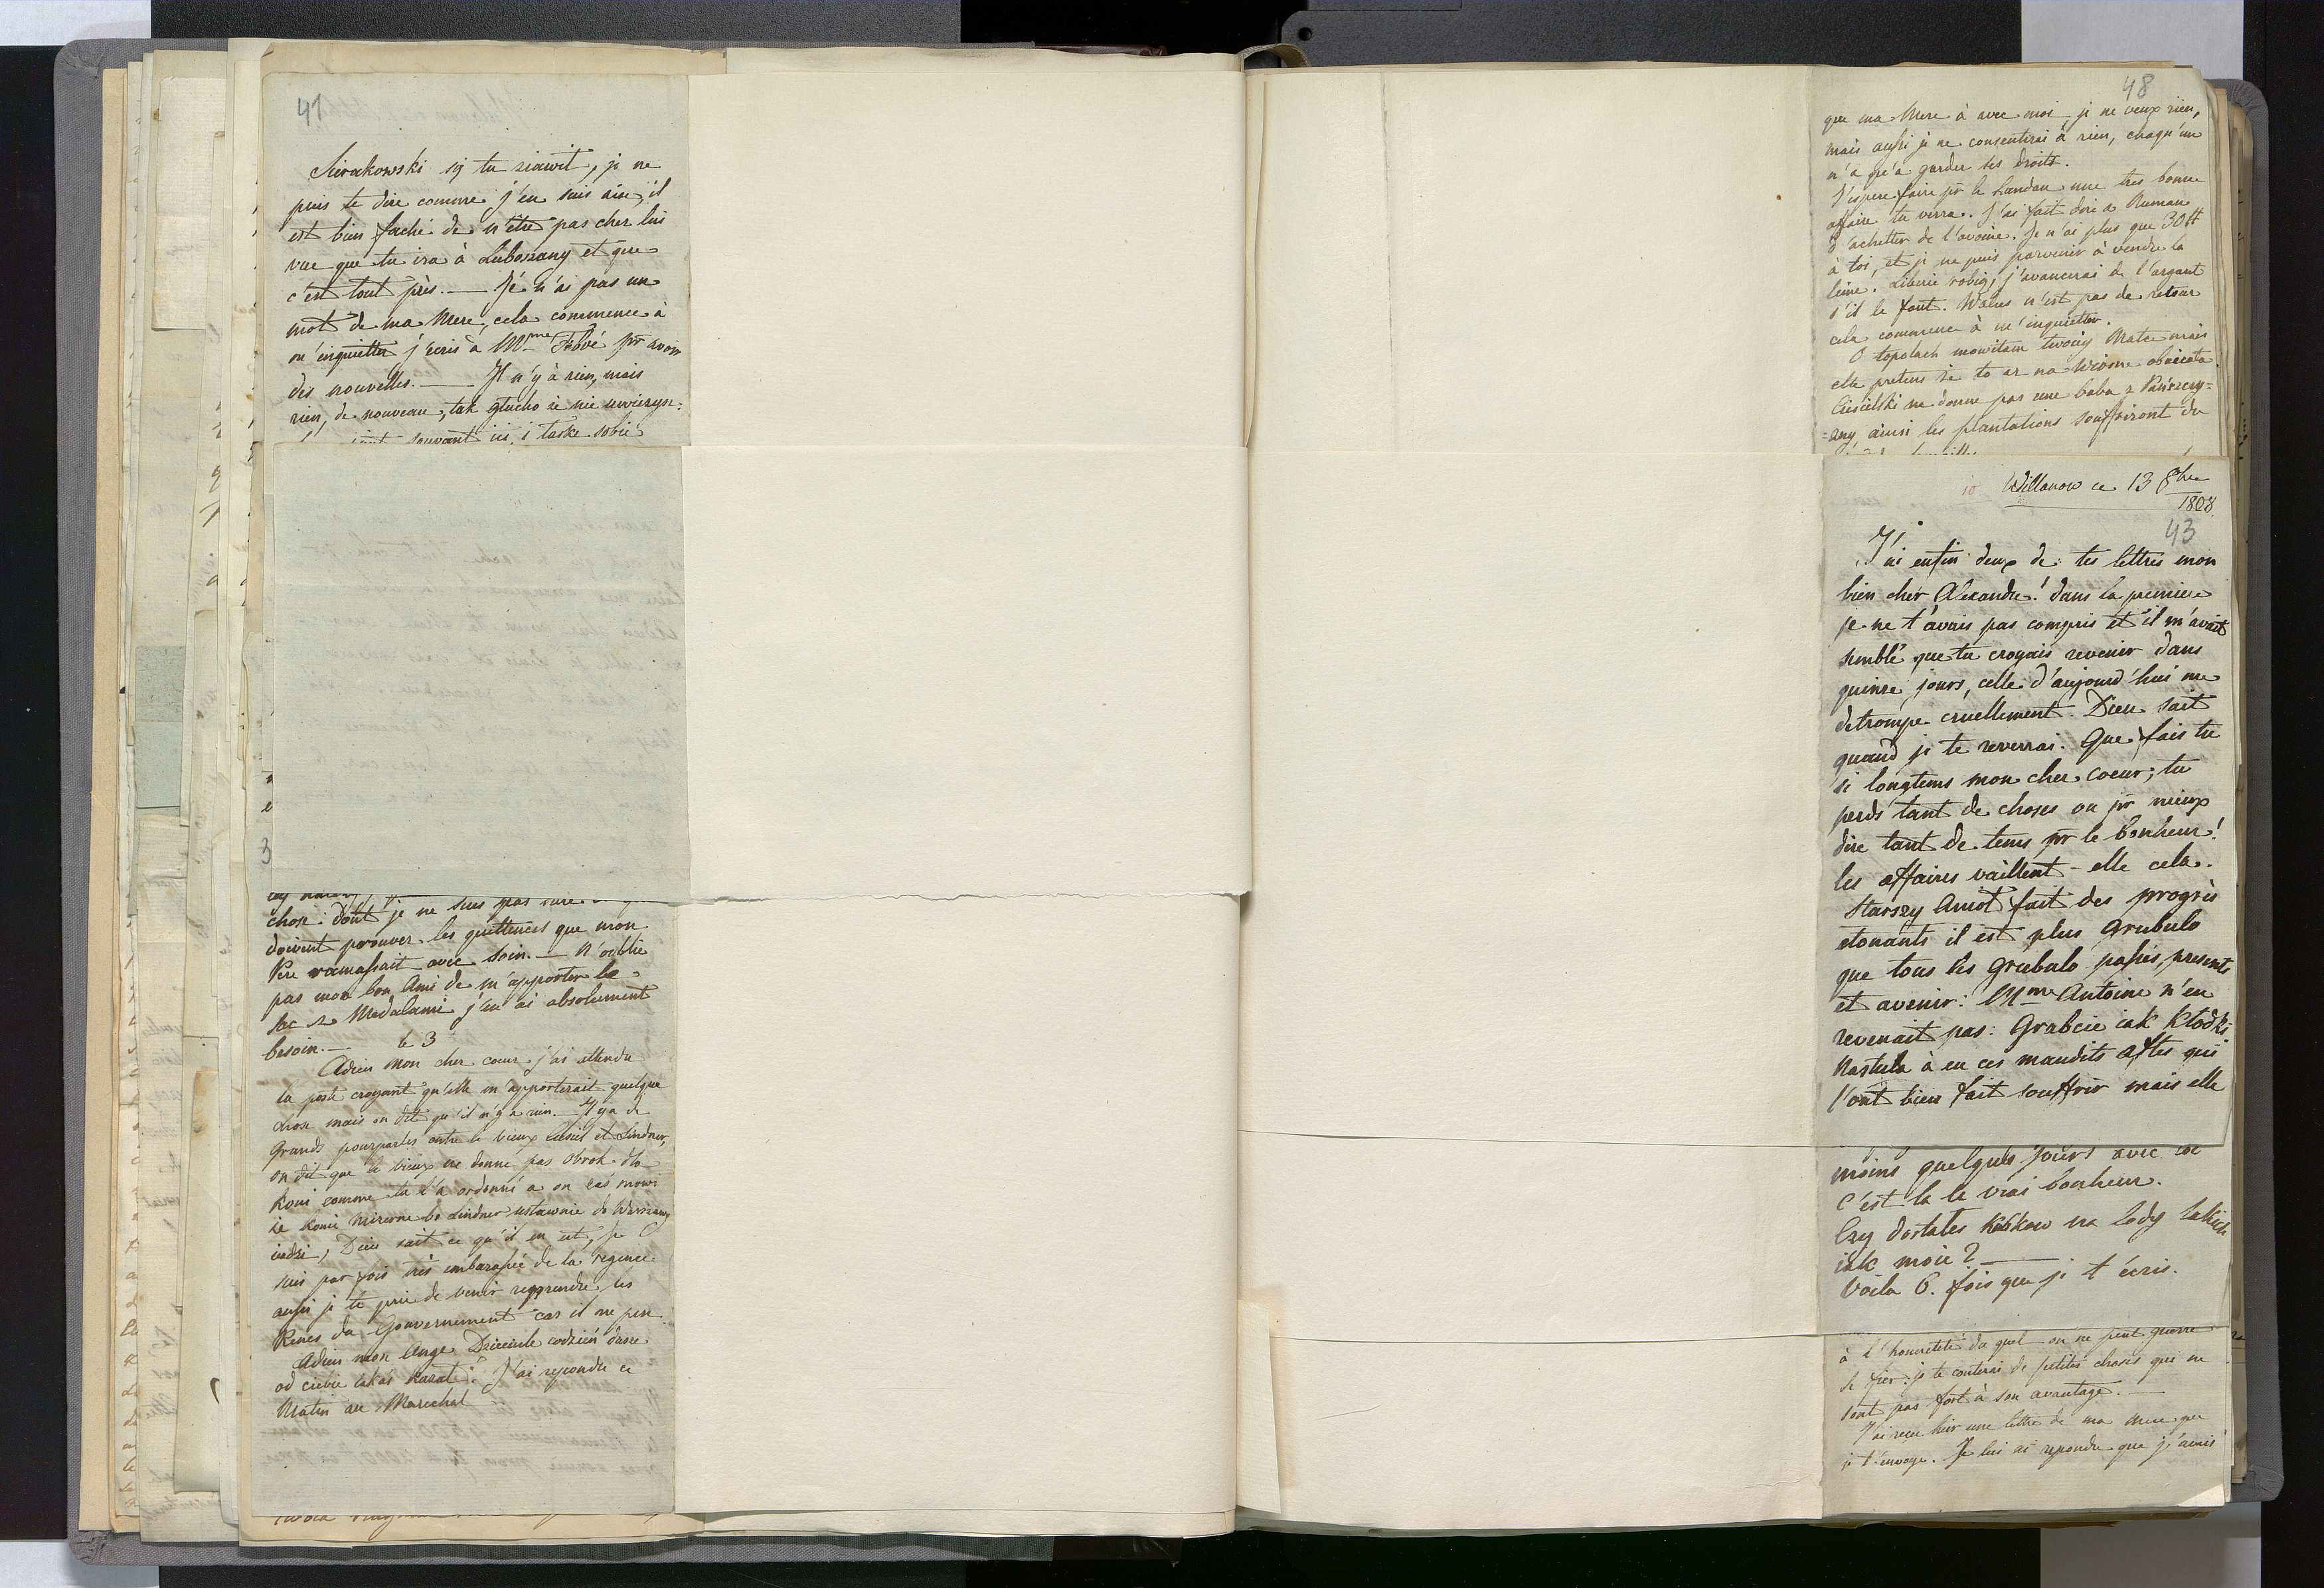 41
Sierakowski się tu ziawił, je ne
puis te dire comme j'en suis aise, il
est bien faché de n'être pas cher lui
vue que tu ira à Luboszany et que
c'est tout près. — Je n'ai pas un
mot de ma Mere, cela commence à
m'inquietter j'ecris à Mme pr avoir
des nouvelles. — Il n'y à rien, mais
rien, de nouveau, tak głucho że nie uwierzysz:
souvant ici, i taske sobie
chose: dont je ne suis pas sure
doivent prouver les quittences que mon
Pere ramassait avec soin. — N'oublie
pas mon bon Ami de m'apporter le
sac z Medalami j'en ai absolument
besoin. —
le 3
Adieu mon cher cœur j'ai attendu
la poste croyant qu'elle m'apporterait quelque
chose mais on dit qu'il n'y a rien. — Il y a de
Grands pourparlés entre le vieux et Lindner,
on dit que le vieux ne donne pas obrok dla
koni comme tu l'a ordonné a on zas mowi
że konie mizerne bo Lindner ustawnie do Warszawy
iedzi, Dieu sait ce qu'il en est, je
suis par fois très embarassée de la regence
aussi je te prie de venir repprendre les
Renes du Gouvernement car il me pese.
Adieu mon Ange Dzieciule codzień
od ciebie J'ai repondu ce
Matin au Marechal
48
que ma Mere à avec moi, je ne veux rien,
mais aussi je ne consentirai à rien, chaqu'un
n'a qu'à garder ses droits.
J'espere faire pr le Landau une tres bonne
affaire tu verra. J'ai fait dire a Ruman
d'achetter de l'avoine. Je n'ai plus que 30#
à toi, et je ne puis parvenir à vendre la
leine. robię, j'avancerai de l'argant
s'il le faut. n'est pas de retour
cela commence à m'inquietter.
O topolach mowiłam twoiey Matce mais
elle pretens że to aż na Wiosne
Ciesielski ne donne pas une baba z Pańszczy=
=zny, ainsi les plantations souffriront du
Willanow ce 13 8bre
1808
43
J'ai enfin deux de tes lettres mon
bien cher Alexandre! dans la premiere
je ne t'avais pas compris et il m'avait
semblé que tu croyais revenir dans
quinse jours, celle d'aujourd'hui me
detrompe cruellement. Dieu sait
quand je te reverrai. Que fais tu
si longtems mon cher coeur; tu
perds tant de choses ou pr mieux
dire tant de tems pr le bonheur!
les affaires vaillent-elle cela.
Starszy Aniot fait des progrès
etonants il est plus Grubulo
que tous les Grubulo passés, presents
et avenir: Mme Antoine n'en
revenait pas: Grabcie iak Kłodki
Nastula à eu ces maudits aftes qui
l'ont bien fait souffrir mais elle
moins quelques jours avec toi
C'est la le vrai bonheur.
Czy dostałes Kubkow na lody takich
iak moie? —
Voila 6. fois que je t'écris.
à l'honnetêté du quel on ne peut guerre
se fier. je te conterai de petites choses qui ne
sont pas fort à son avantage. —
J'ai reçue hier une lettre de ma Mere que
je t'envoye. Je lui ai repondu que j'aimis